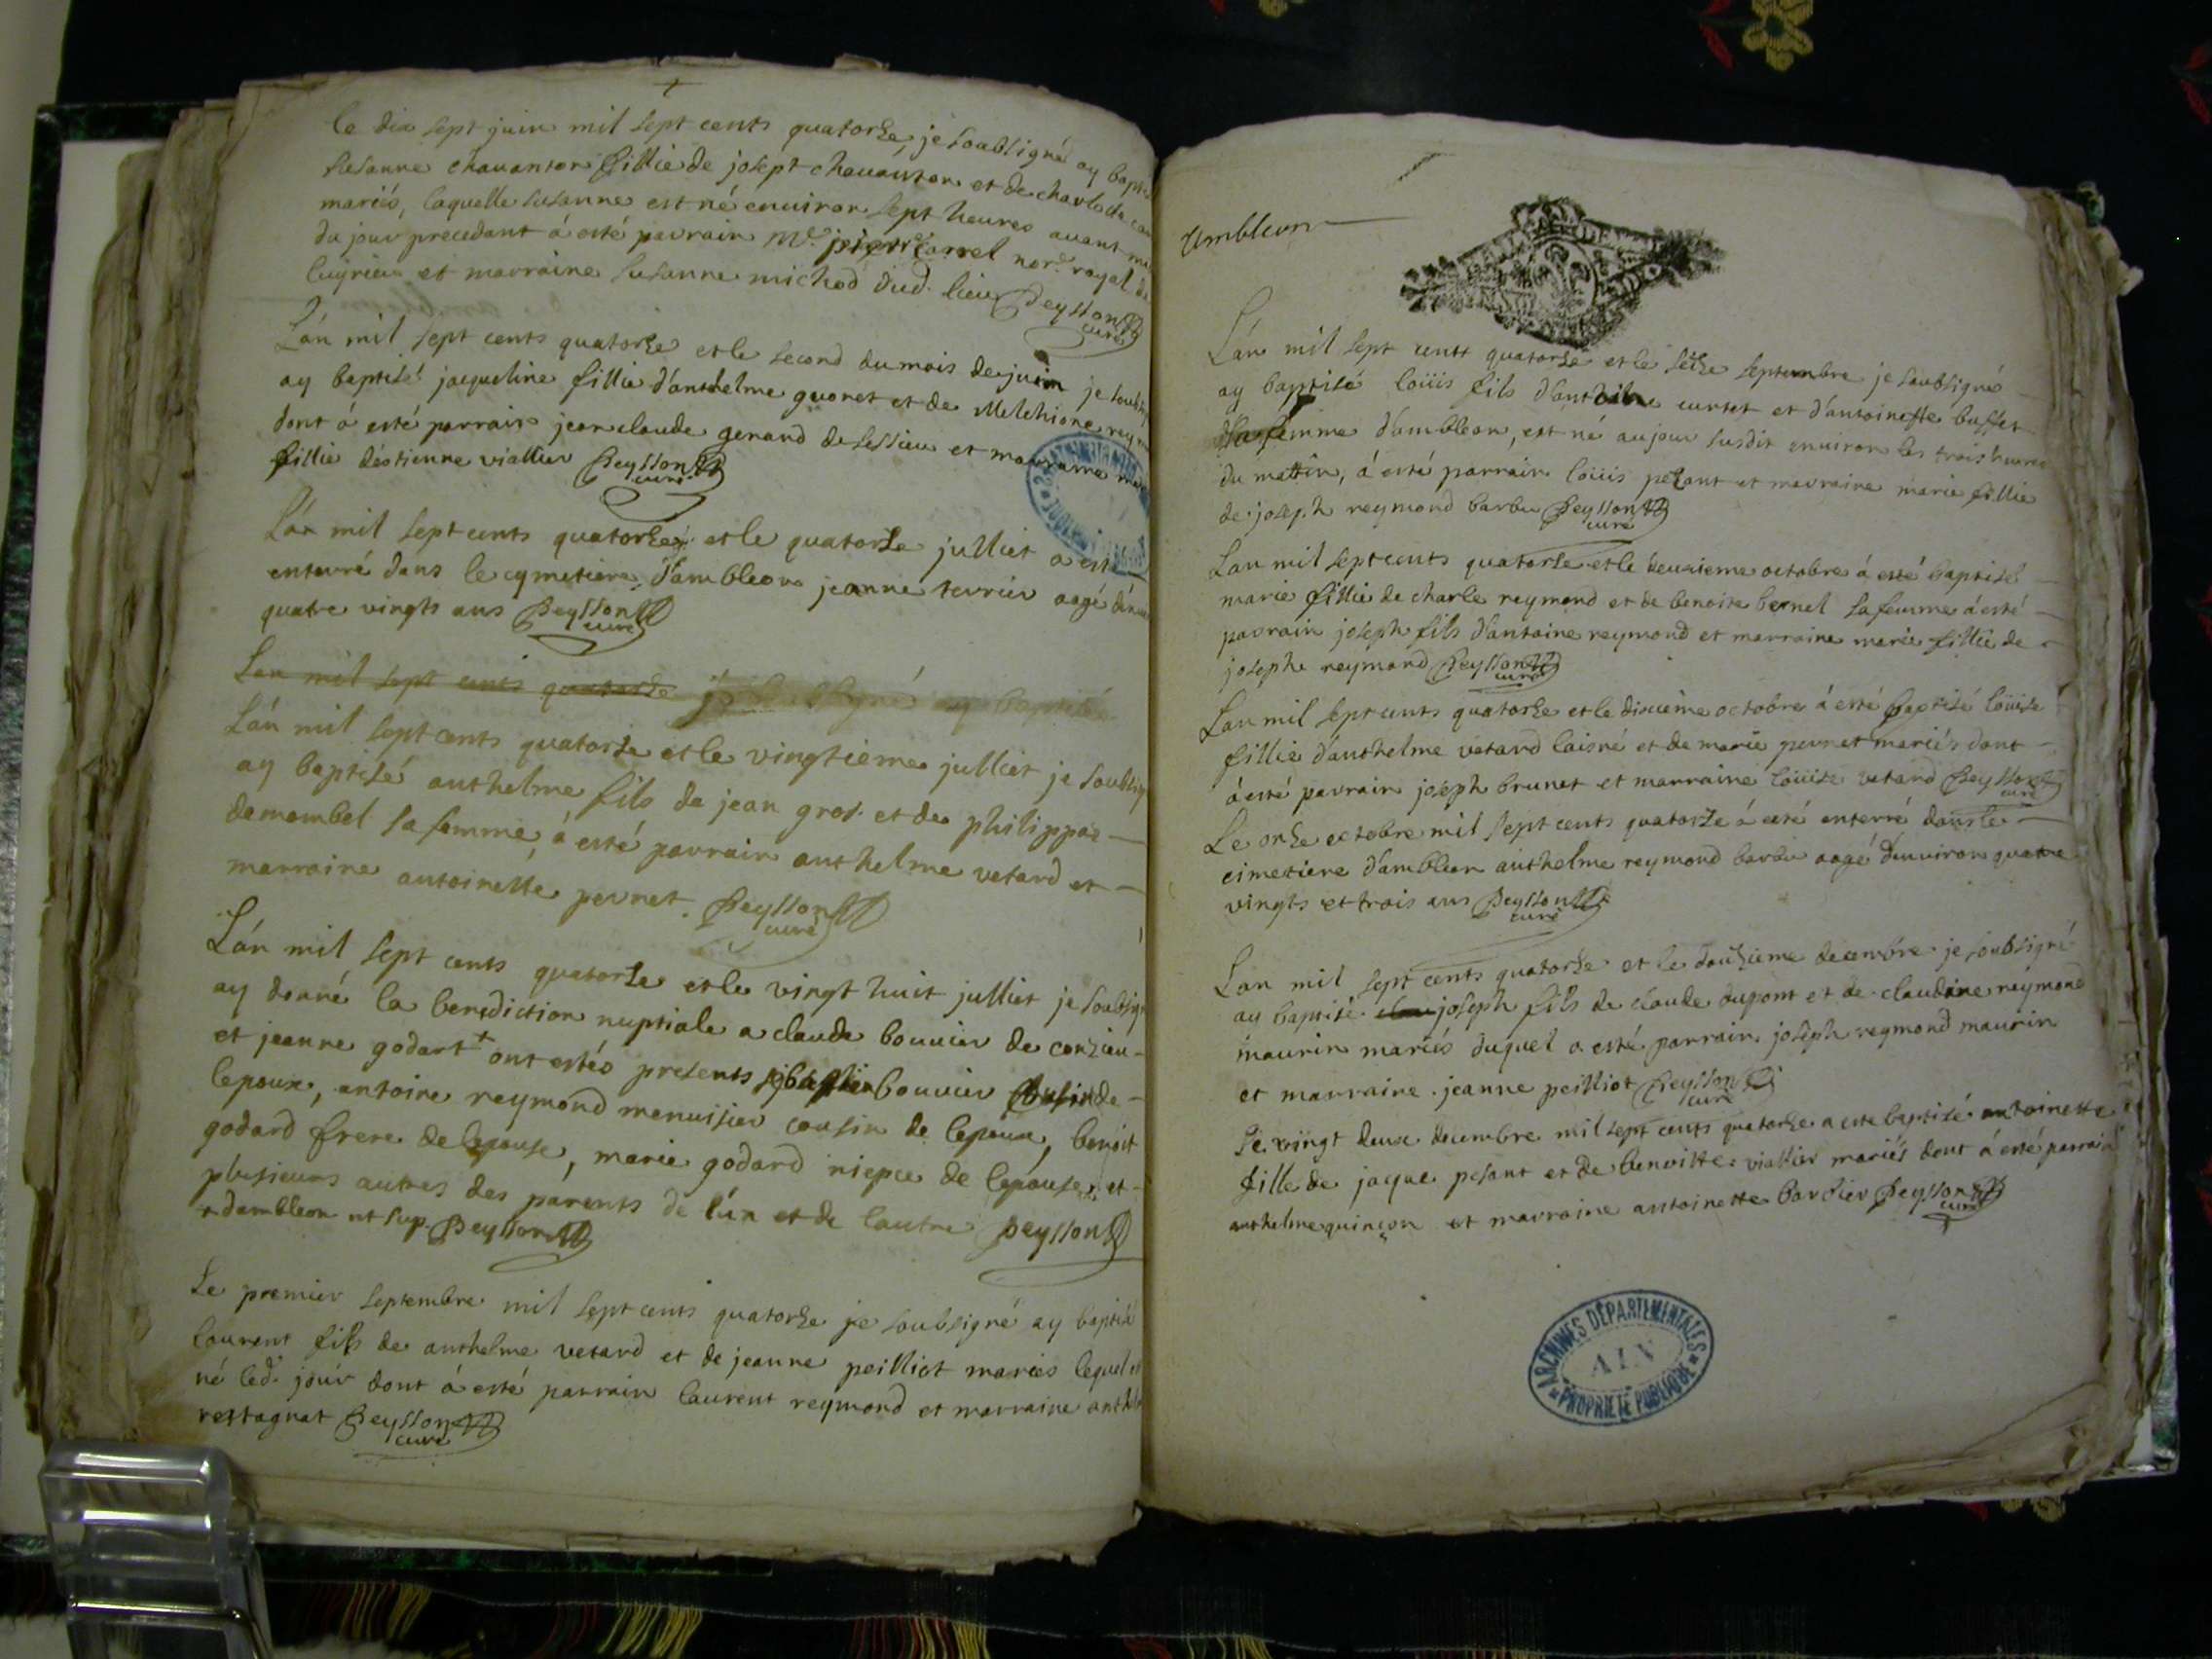 le dix sept juin mil sept cents quatorze, je soubsigné ay bapti
susanne chavanton fillie de josept chavanton et de charlote
mariés, laquelle susanne est né environ sept heures avant mi
du jour precedant á esté parrain Mr. pierre carrel nore. royal de
luyrieu et marraine susanne michod dud. lieu Peysson
curé
Lán mil sept cents quatorze et le second du mois de juin je soubsig
ay baptisé jacqueline fillie d'anthelme guoret et de Melchione rey
dont á esté parrain jean claude gerand de sessieu et marraine mar
fillie déstienne viallier Peysson
curé
Lán mil sept cents quatorze et le quatorze julliet a esté
enterré dans le cymetiere d'ambleon jeanne terrier aagé dén
quatre vingts ans Peysson
curé
Lan mil sept cents quatorze je soubsigné ay baptisé
Lán mil sept cents quatorze et le vingtieme julliet je soubsig
ay baptisé anthelme fils de jean gros et de philippae
demembel sa femme, á esté parrain anthelme vetard et
marraine antoinette pernet. Peysson
curé
Lán mil sept cents quatorze et le vingt huit julliet je soubsig
ay donné la benediction nuptiale a claude bouvier de conzieu
et jeanne godart + ont estés presents bouvier cousin de
lepoux, antoine reymond menuisier cousin de lepoux, benoit
godard frere de lepouse, marie godard niepce de lepouse, et
plusieurs autres des parents de l'un et de lautre peysson
+ dambleon ut sup. Peysson
Le premier septembre mil sept cents quatorze je soubsigné ay baptisé
laurent fils de anthelme vetard et de jeanne peilliot mariés lequel es
né led. jour dont á esté parrain laurent reymond et marraine anthel
restagnat Peysson
curé
Ambleon
Lán mil sept cents quatorze et le seize septembre je soubsigné
ay baptisé loüis fils d'antoine curtet et d'antoinette buffet
sa femme d'ambleon, est né au jour susdit environ les trois heures
du mattin, á esté parrain loüis pezant et marraine marie fillie
de joseph reymond barbu Peysson
curé
Lan mil sept cents quatorze et le deuxieme octobre á esté baptisé
marie fillie de charle reymond et de benoite bernel sa femme á esté
parrain joseph fils d'antoine reymond et marraine marie fillie de
joseph reymond Peysson
curé
Lan mil sept cents quatorze et le dixieme octobre á esté baptisé loüise
fillie d'anthelme vetard laisné et de marie pernet mariés dont
á esté parrain joseph brunet et marraine loüise vetard Peysson
curé
Le onze octobre mil sept cents quatorze á esté enterré dans le
cimetiere d'ambleon anthelme reymond barbu aagé d'environ quatre
vingts et trois ans Peysson
curé
Lan mil sept cents quatorze et le douzieme decembre je soubsigné
ay baptisé joseph fils de claude dupont et de claudine reymond
maurin mariés duquel a esté parrain joseph reymond maurin
et marraine jeanne peilliot Peysson
curé
Le vingt deux decembre mil sept cents quatorze a esté baptisé antoinette
fille de jaque pesant et de benoitte viallier mariés dont á esté parrain
anthelme quinçon et marraine antoinette barbier Peysson
curé
ARCHIVES DÉPARTEMENTALES
AIN
PROPRIÉTÉ PUBLIQUE